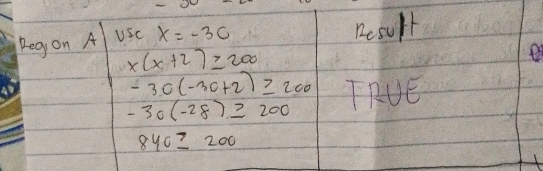 Region A
Use X = -30
x(x+2) ≥ 200
-30(-30+2) ≥ 200
-30(-28) ≥ 200
840 ≥ 200
Result
TRUE